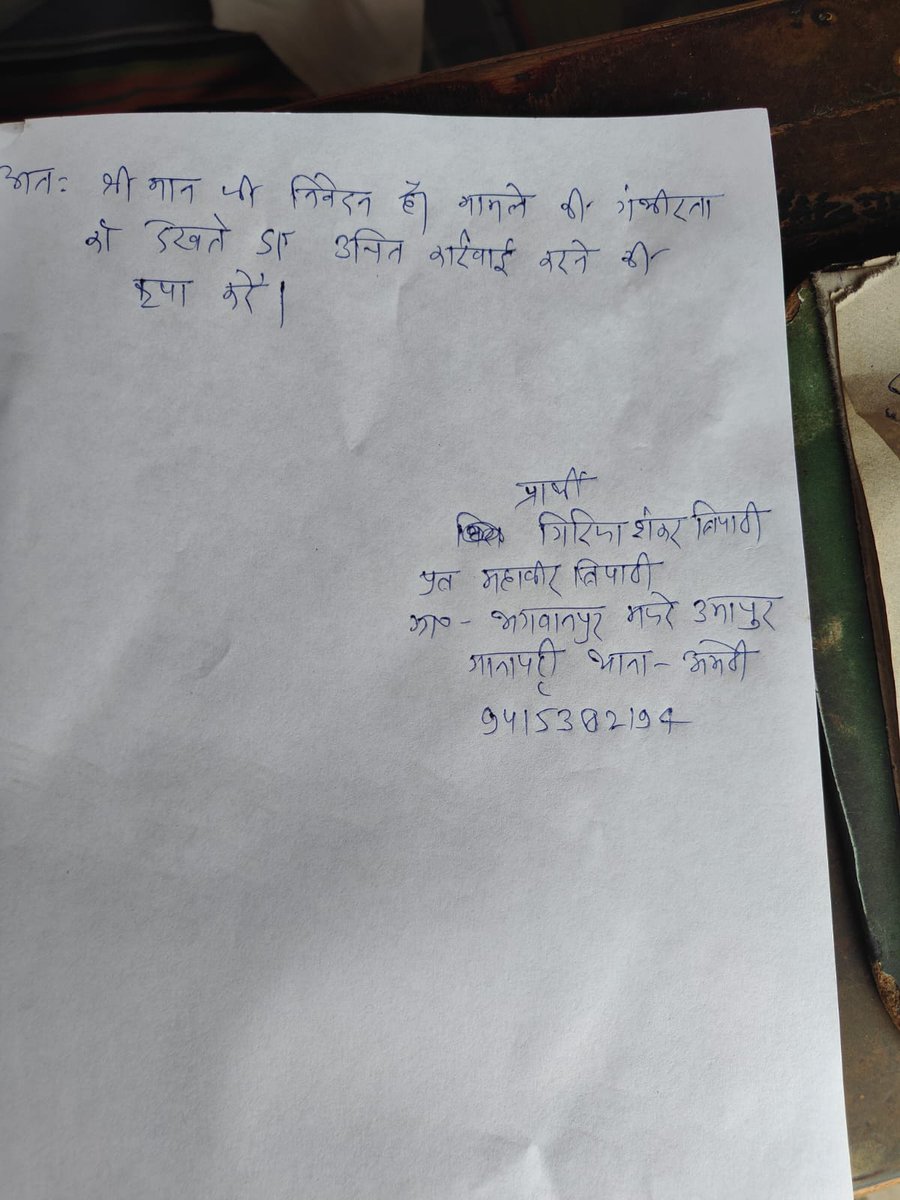 अतः श्री मान जी निवेदन है। मामले की गंभीरता
को देखते हुए उचित कार्रवाई करने की
कृपा करें।
प्रार्थी
गिरिजा शंकर त्रिपाठी
पुत्र महावीर त्रिपाठी
ग्रा०- भगवानपुर मजरे उमापुर
गानापट्टी थाना- अमेठी
9415382194